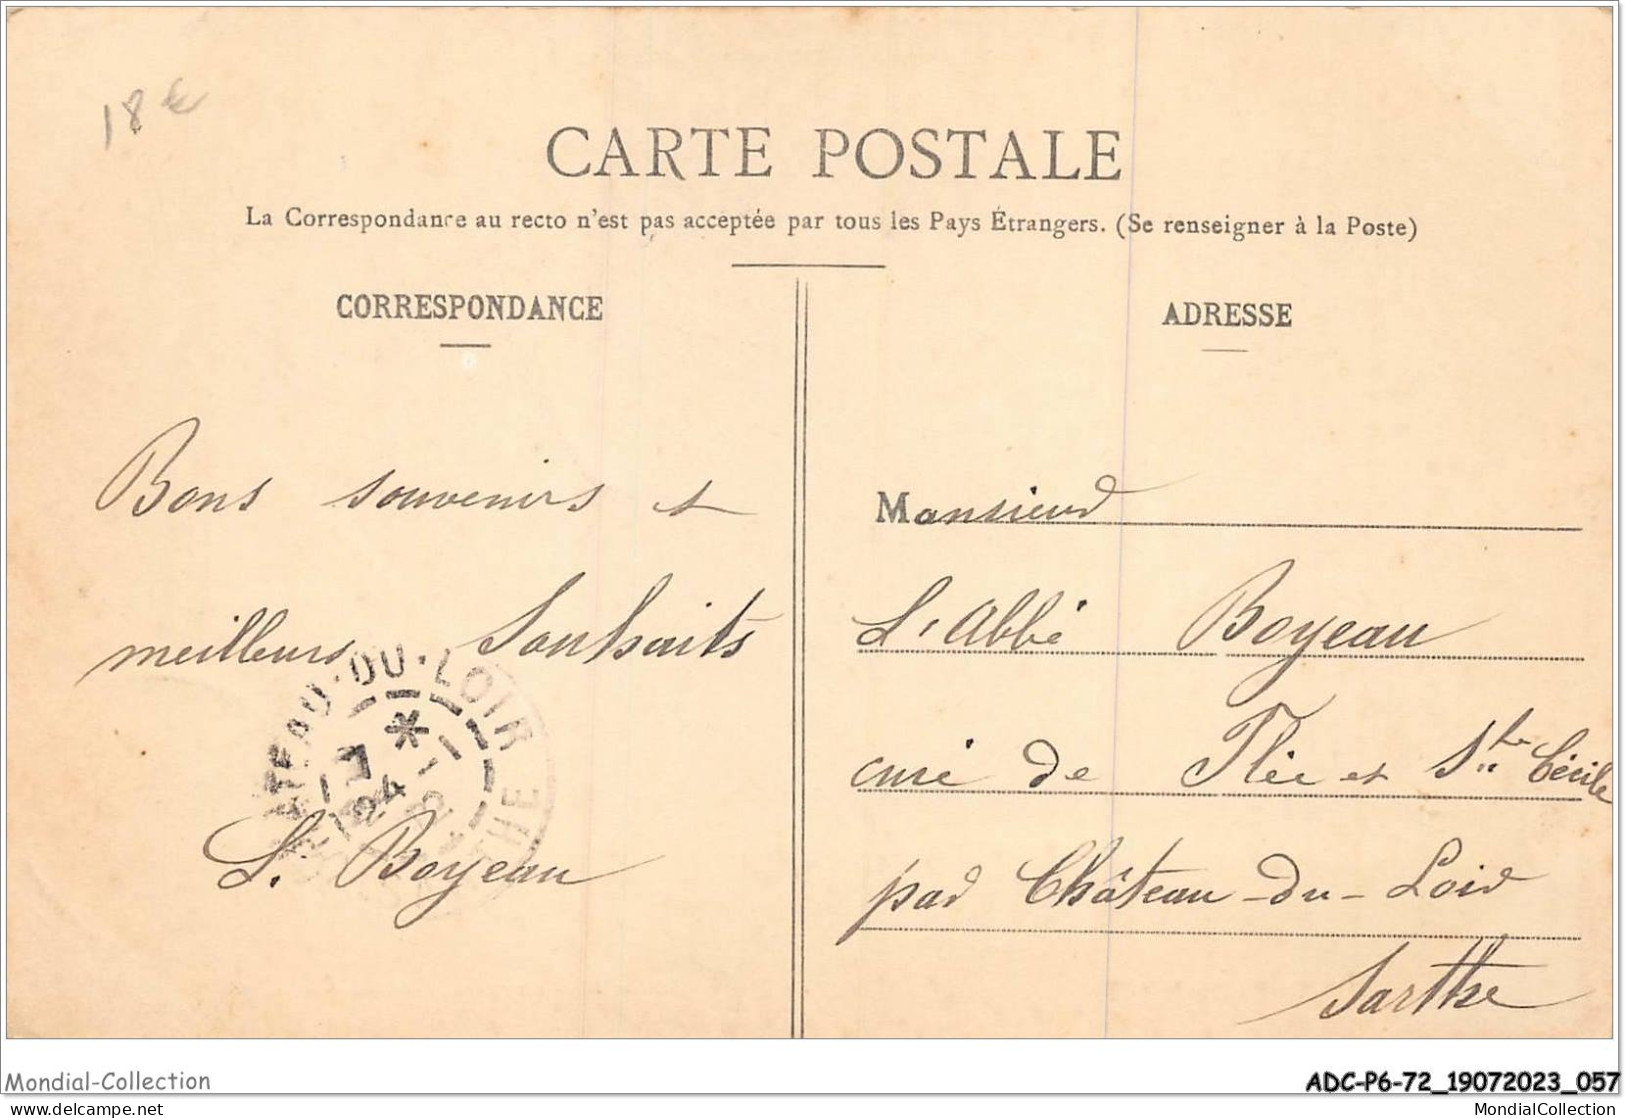 18 €
CARTE POSTALE
La Correspondance au recto n'est pas acceptée par tous les Pays Étrangers. (Se renseigner à la Poste)
CORRESPONDANCE
Bons souvenirs et
meilleurs Souhaits
L. Boyeau
DU-LOIR
24
ADRESSE
Monsieur
L'Abbé Boyeau
curé de Flée et Ste Cécile
par Château-du-Loir
Sarthe
Mondial-Collection
ADC-P6-72_19072023_057
delcampe.net
MondialCollection